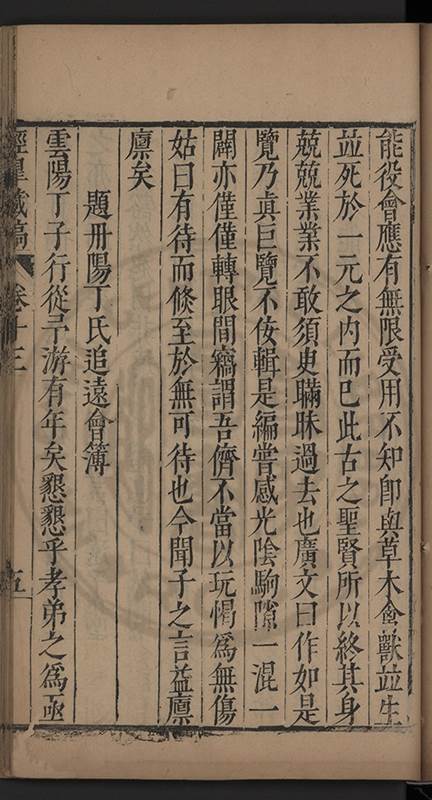 能役會應有無限受用不知卽與草木禽獸並生
並死於一元之内而已此古之聖賢所以終其身
兢兢業業不敢須臾瞞昧過去也廣文曰作如是
覽乃眞巨覽不佞輯是編嘗感光陰駒隙一混一
闢亦僅僅轉眼間竊謂吾儕不當以玩愒爲無傷
姑曰有待而倐至於無可待也今聞子之言益廪
廪矣
題丹陽丁氏追遠會簿
雲陽丁子行從予游有年矣懇懇乎孝弟之爲亟
涇臯藏稿
卷十三
五